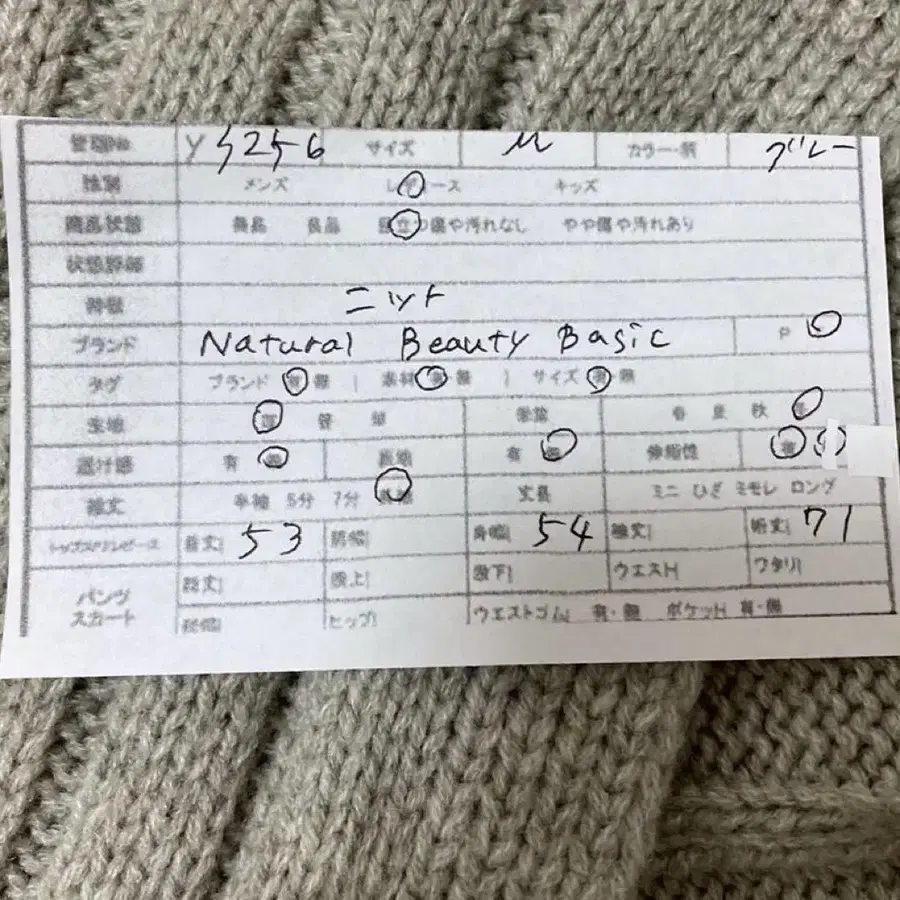 管理No Y5256 サイズ M カラー・柄 グレー
性別 メンズ レディース キッズ
商品状態 美品 良品 目立つ傷や汚れなし やや傷や汚れあり
状態詳細
ニット
ブランド Natural Beauty Basic P
タグ ブランド 有・無 | 素材 有・無 | サイズ 有・無
生地 厚 普 薄 季節 春 夏 秋 冬
透け感 有 無 裏地 有 無 伸縮性 有
袖丈 半袖 5分 7分 長袖 丈長 ミニ ひざ ミモレ ロング
トップス/ワンピース 着丈| 53 肩幅| 身幅| 54 袖丈| 裄丈| 71
パンツ スカート 総丈| 股上| 股下| ウエスト| ワタリ|
裾幅| ヒップ| ウエストゴム| 有・無 ポケット| 有・無